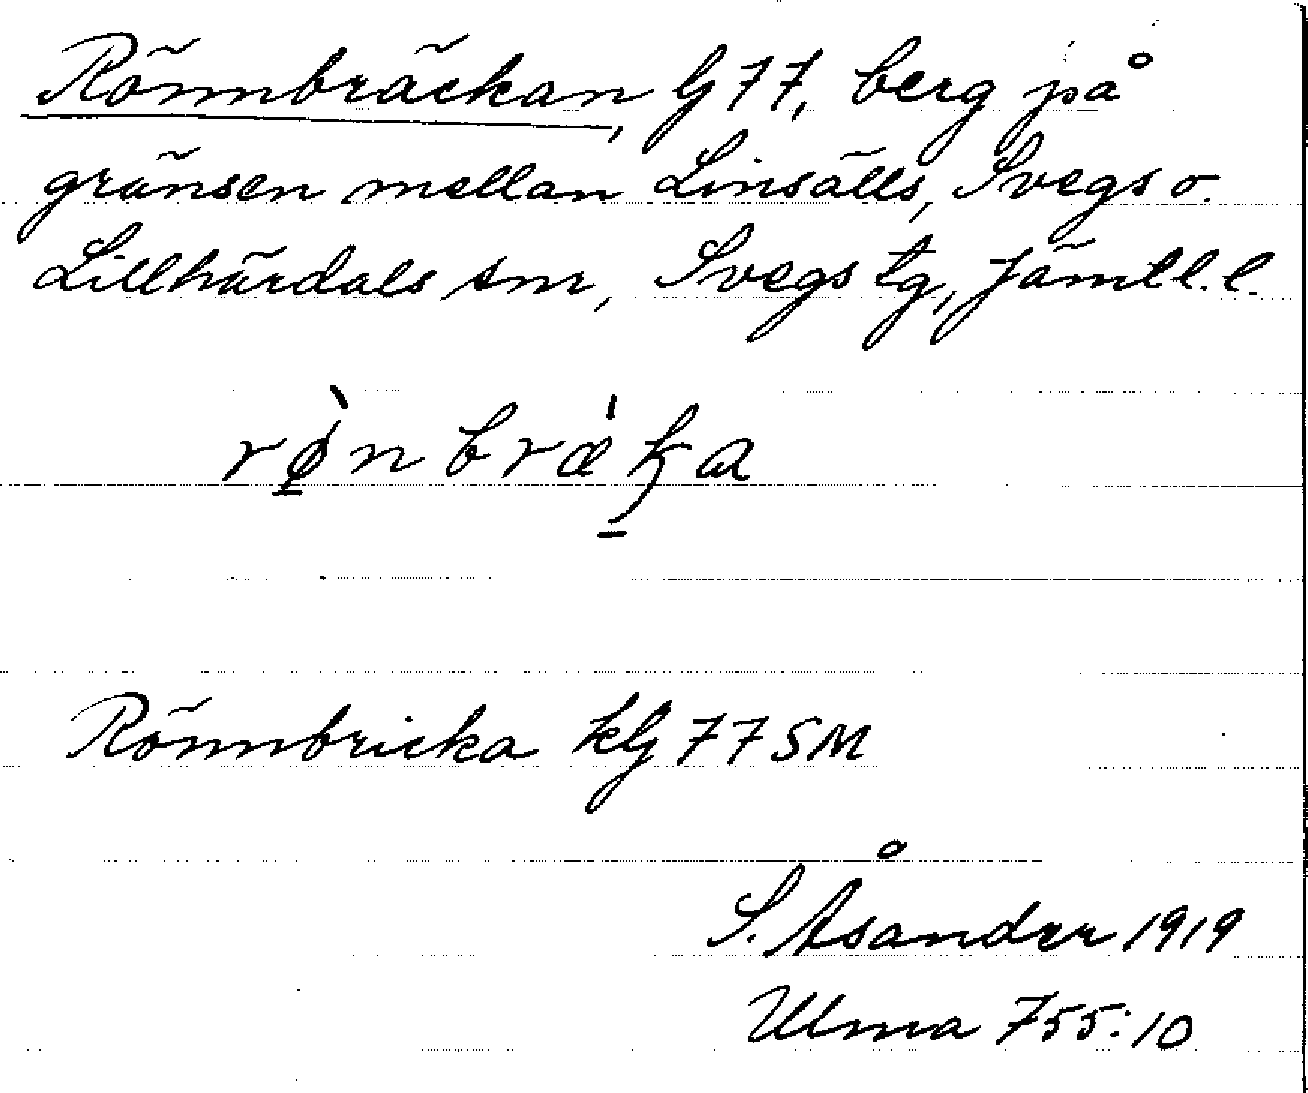 Rönnbräckan, G 77, berg på
gränsen mellan Linsälls, Svegs o.
Lillhärdals snr, Svegs tg, Jämtl. l.
rø̀nbræ̍ka
Rönnbricka kG 77 SM
S. Åsander 1919
Ulma 755:10